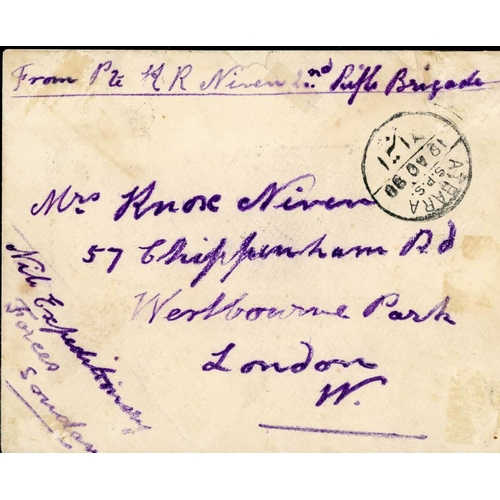 From Pte K R Niven 2nd Rifle Brigade
ATBARA
S.P.S.
Mrs Knox Niven
57 Chippenham Rd
Westbourne Park
London
W.
Nile Expeditionary
Forces
Soudan